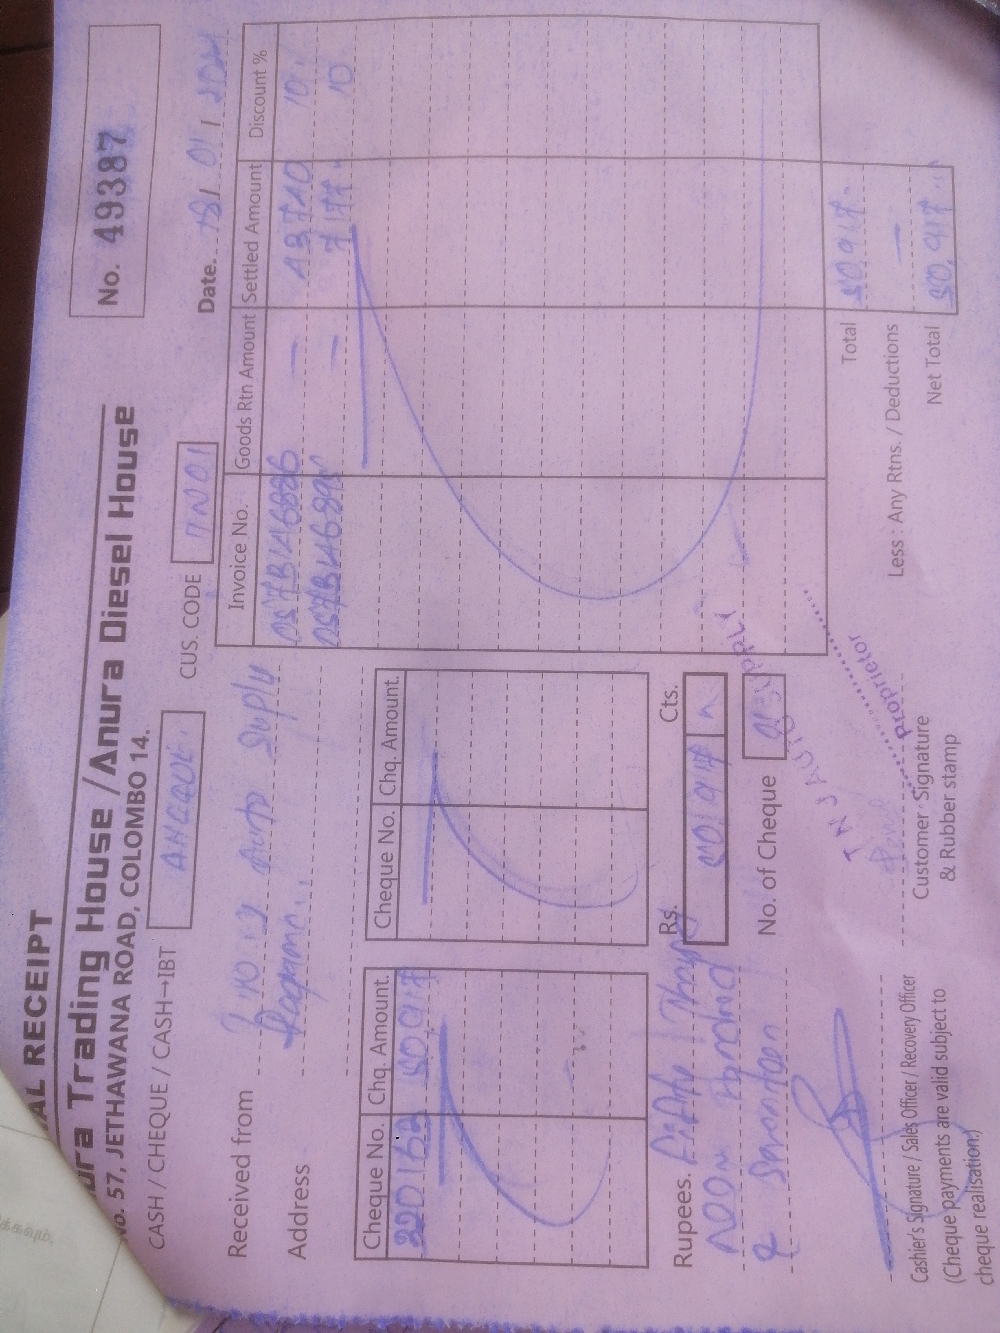 AL RECEIPT
ura Trading House / Anura Diesel House
No. 57, JETHAWANA ROAD, COLOMBO 14.
No. 49387
CASH / CHEQUE / CASH→IBT
CUS. CODE TN01
Date. 18/01/2024
Received from
Address
Invoice No. Goods Rtn Amount Settled Amount Discount %
— 43740 10
— 7177 10
Cheque No. Chq. Amount. Cheque No. Chq. Amount.
320152 50917
Rupees. Fifty Thou
Noon Hundred
& Seventeen
Rs. Cts.
50917
No. of Cheque
Total 50,917.
Less : Any Rtns. / Deductions —
Net Total 50,917
TNJ AUTO SUPPLI
Proprietor
Cashier's Signature / Sales Officer / Recovery Officer
(Cheque payments are valid subject to
cheque realisation.)
Customer Signature
& Rubber stamp